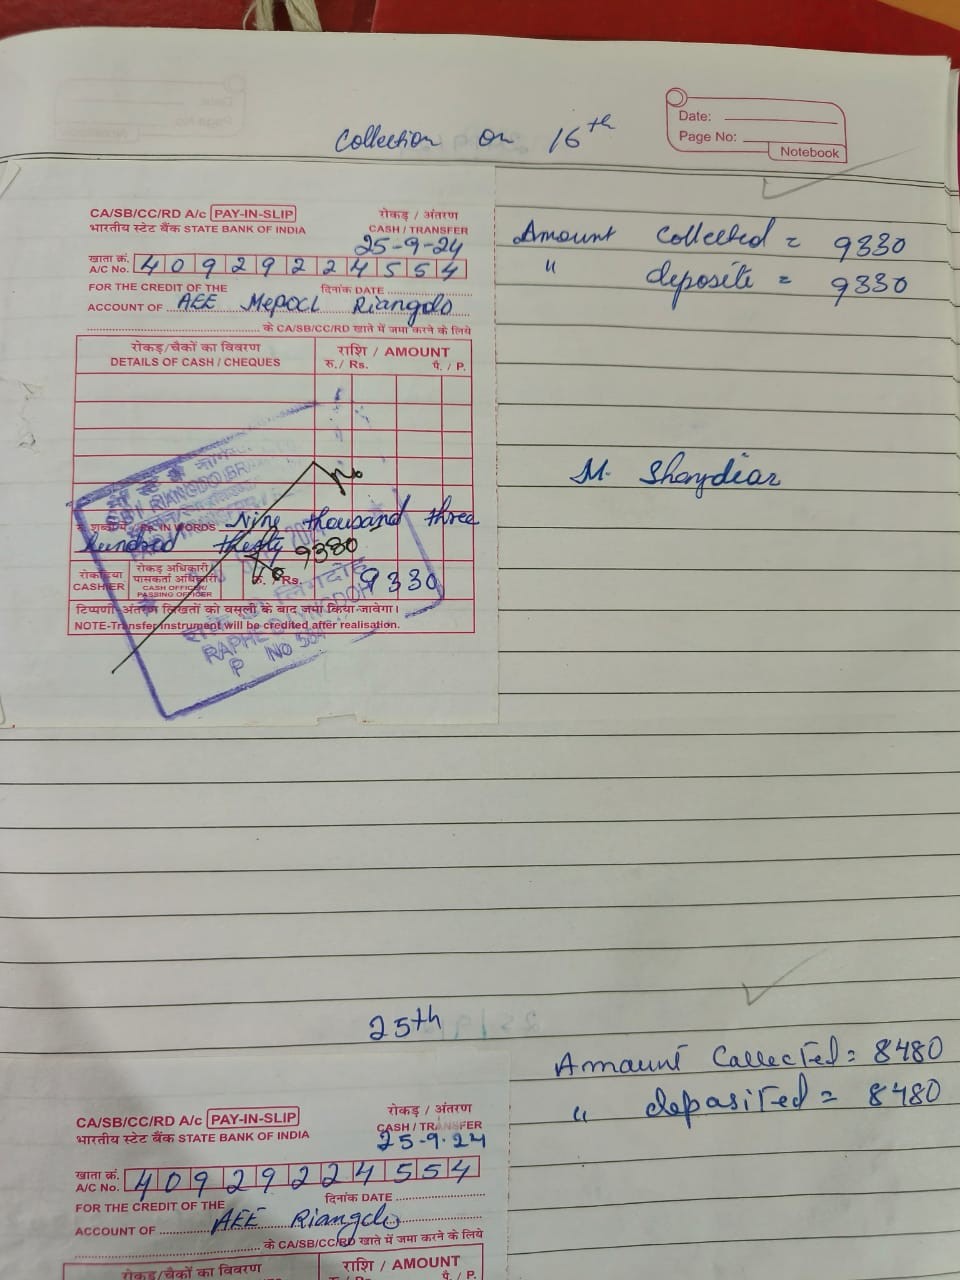 Collection on 16th
Date:
Page No:
Notebook
CA/SB/CC/RD A/c PAY-IN-SLIP
रोकड़ / अंतरण
भारतीय स्टेट बैंक STATE BANK OF INDIA
CASH / TRANSFER
25-9-24
खाता क्रं.
A/C No. 40929224554
FOR THE CREDIT OF THE
दिनांक DATE
ACCOUNT OF AEE MePDCL Riangdo
के CA/SB/CC/RD खाते में जमा करने के लिये
रोकड़/चैकों का विवरण
राशि / AMOUNT
DETAILS OF CASH / CHEQUES
रु./ Rs.
पै. / P.
IN WORDS Nine thousand three
hundred thirty
9330
रोकड़िया
CASHIER
रोकड़ अधिकारी/
पासकर्ता अधिकारी
CASH OFFICER/
PASSING OFFICER
रु. / Rs.
9330
टिप्पणी-अंतरण लिखतों को वसूली के बाद जमा किया जावेगा।
NOTE-Transfer instrument will be credited after realisation.
Amount collected = 9330
" deposite = 9330
M. Shangdiar
25th
Amount Collected = 8480
" deposited = 8480
CA/SB/CC/RD A/c PAY-IN-SLIP
रोकड़ / अंतरण
भारतीय स्टेट बैंक STATE BANK OF INDIA
CASH / TRANSFER
25-9-24
खाता क्रं.
A/C No. 40929224554
FOR THE CREDIT OF THE
दिनांक DATE
ACCOUNT OF AEE Riangdo
के CA/SB/CC/RD खाते में जमा करने के लिये
रोकड़/चैकों का विवरण
राशि / AMOUNT
रु./ Rs.
पै. / P.